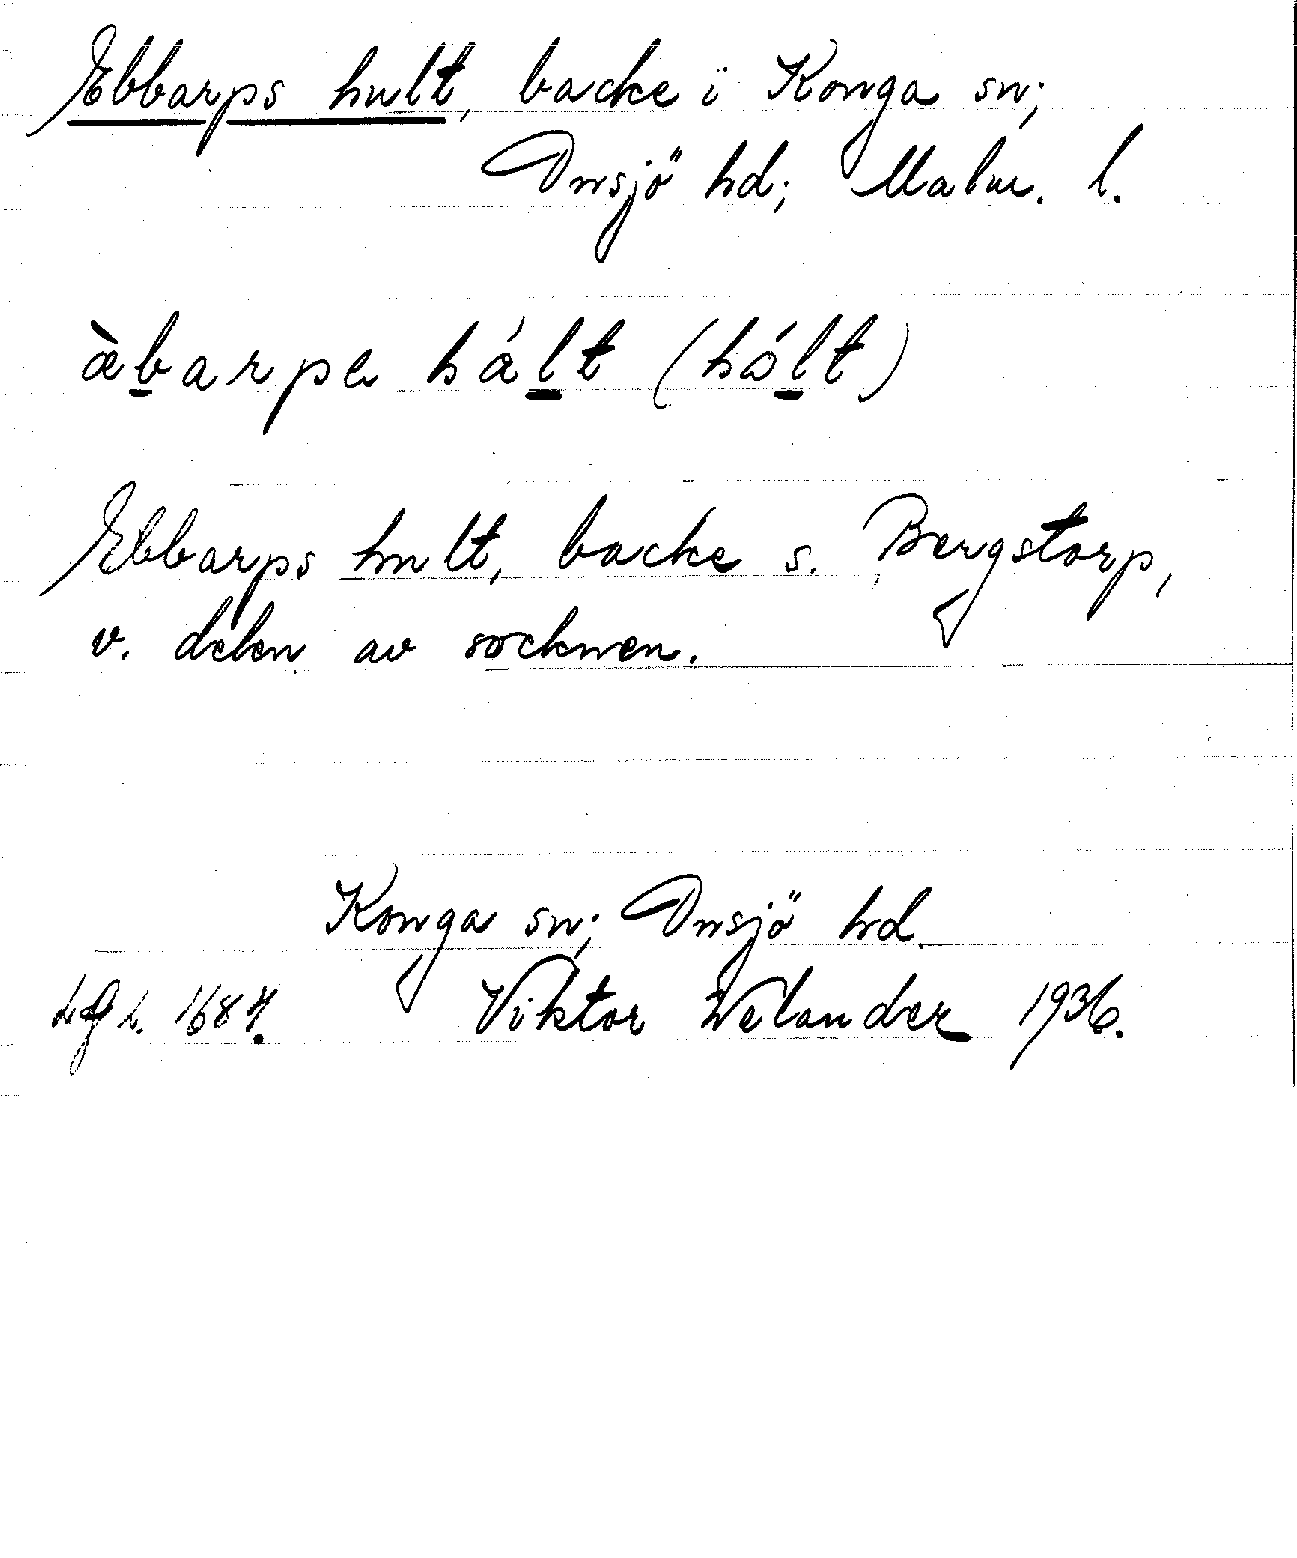 Ebbarps hult, backe i Konga sn;
Onsjö hd; Malm. l.
àbarps hált (hólt)
Ebbarps hult, backe s. Bergstorp,
v. delen av socknen.
Konga sn; Onsjö hd.
1684. Viktor Welander 1936.